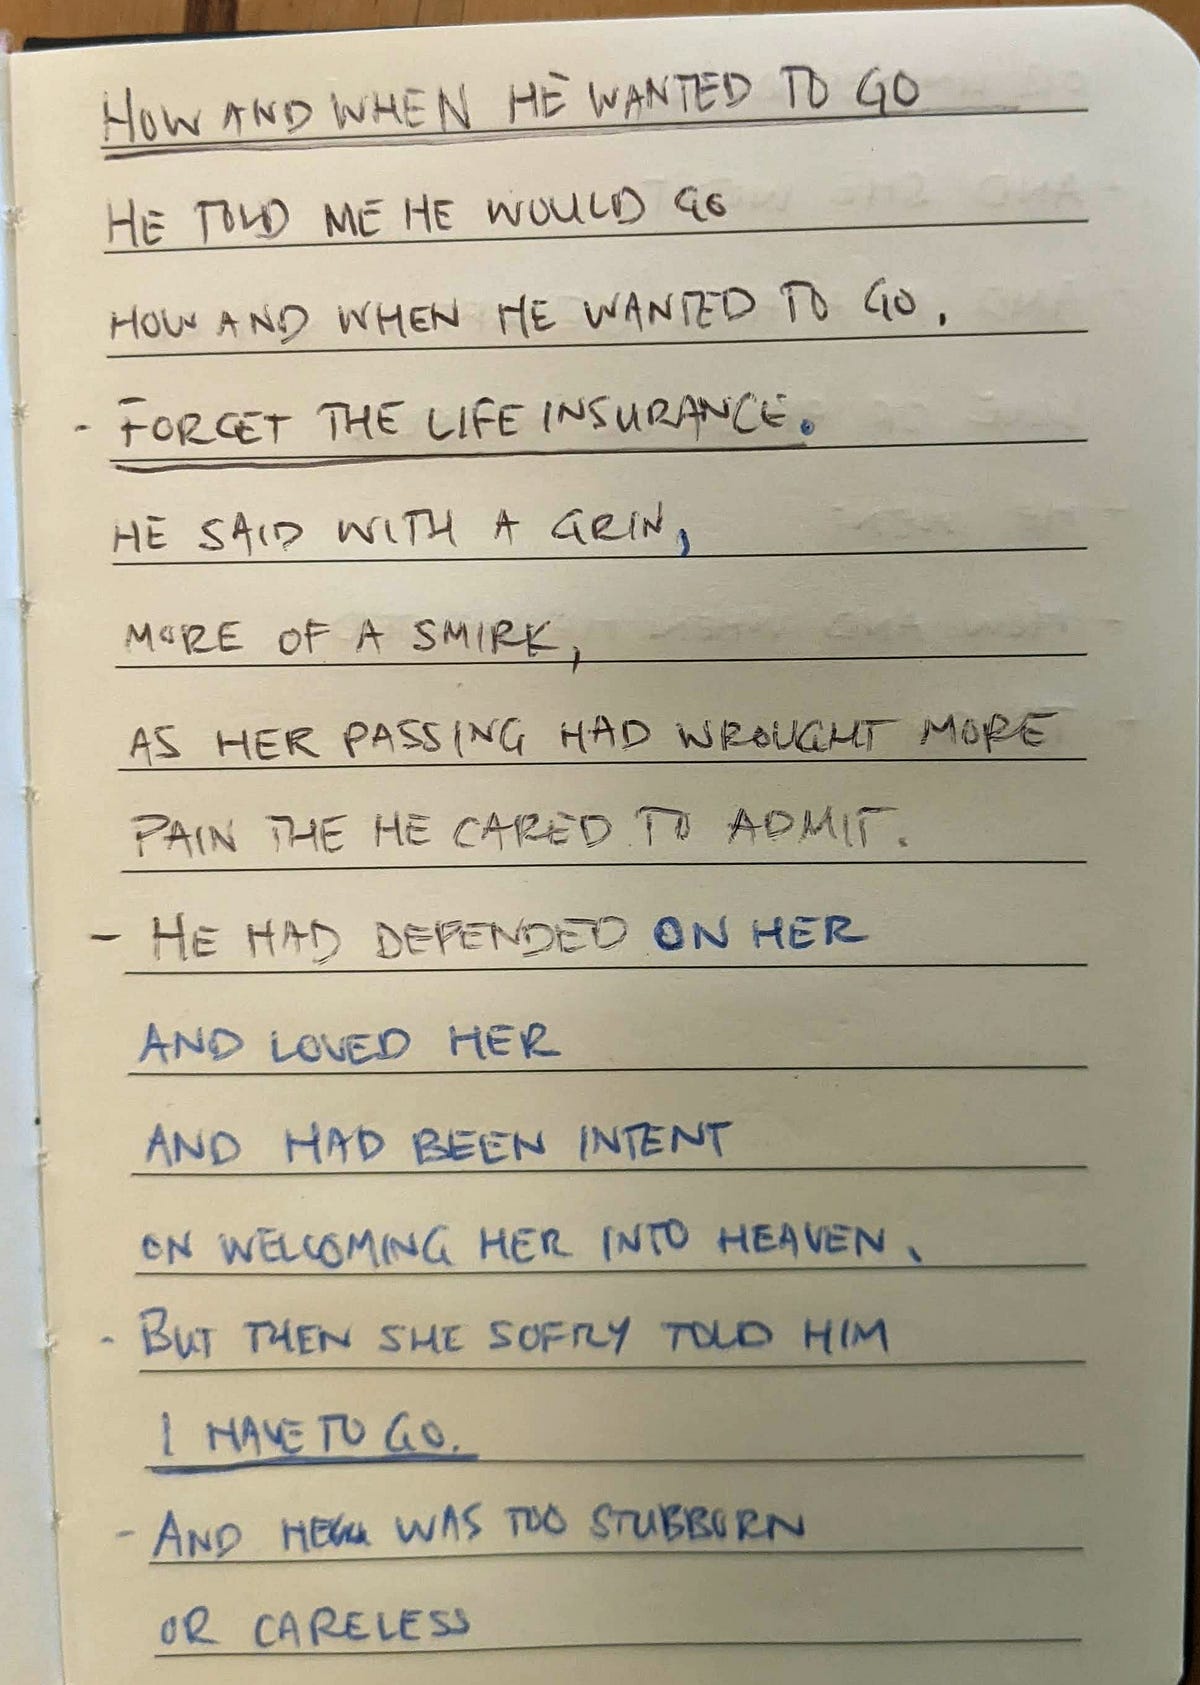 HOW AND WHEN HE WANTED TO GO
HE TOLD ME HE WOULD GO
HOW AND WHEN HE WANTED TO GO.
- FORGET THE LIFE INSURANCE.
HE SAID WITH A GRIN,
MORE OF A SMIRK,
AS HER PASSING HAD WROUGHT MORE
PAIN THE HE CARED TO ADMIT.
- HE HAD DEPENDED ON HER
AND LOVED HER
AND HAD BEEN INTENT
ON WELCOMING HER INTO HEAVEN.
- BUT THEN SHE SOFTLY TOLD HIM
I HAVE TO GO.
- AND HE WAS TOO STUBBORN
OR CARELESS